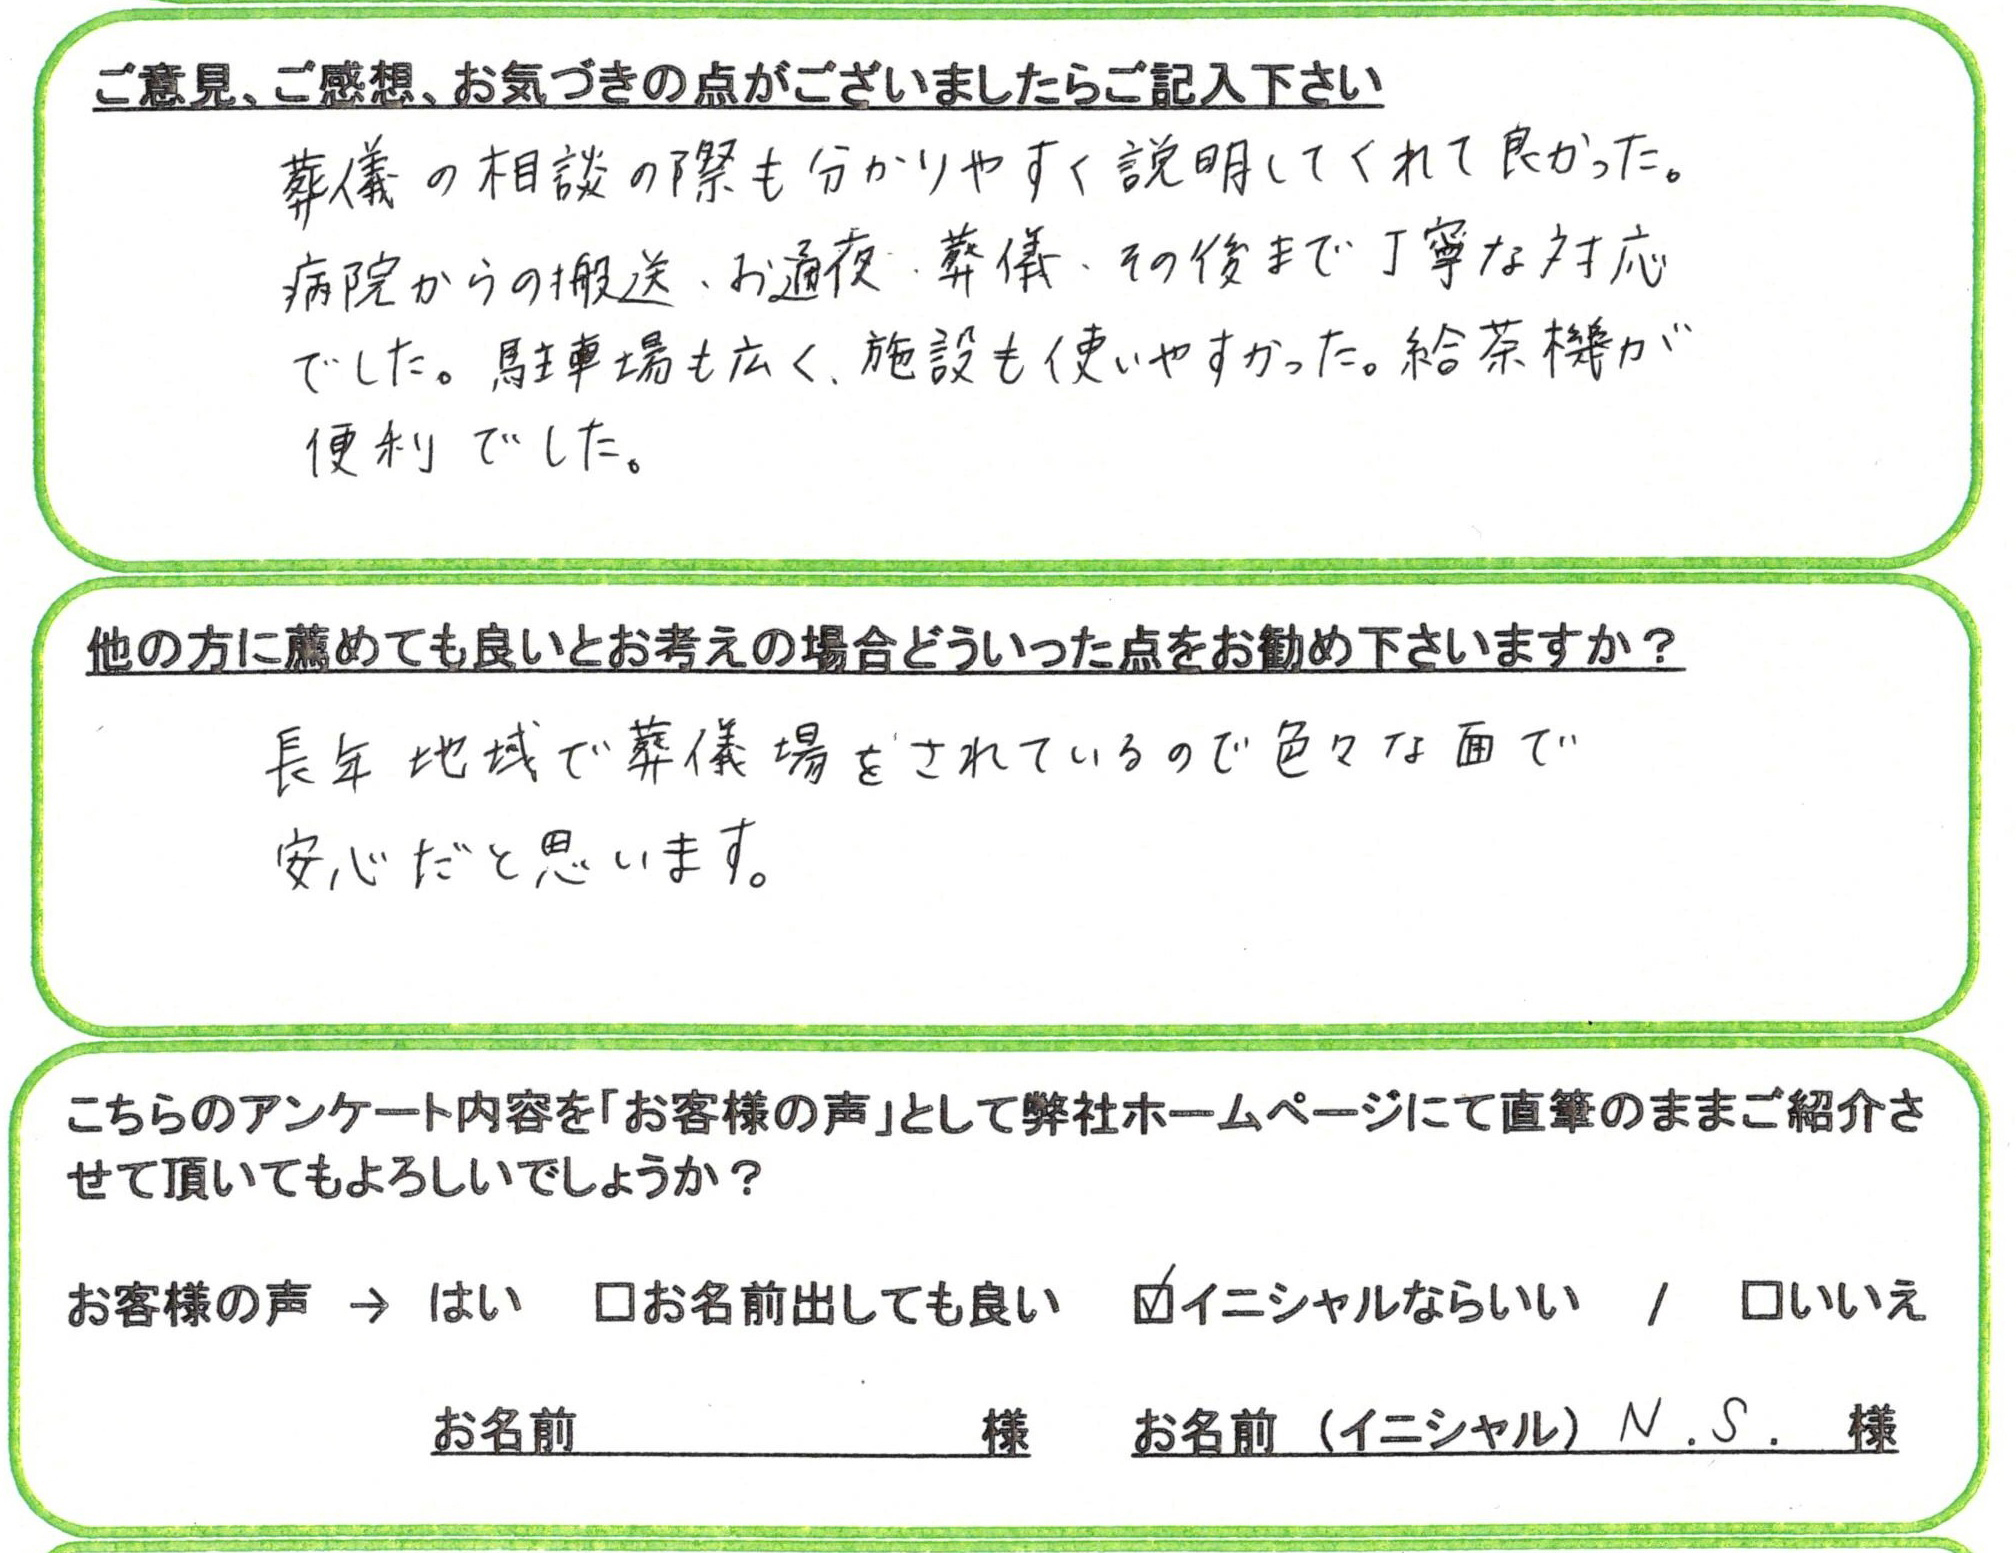 ご意見、ご感想、お気づきの点がございましたらご記入下さい
葬儀の相談の際も分かりやすく説明してくれて良かった。
病院からの搬送、お通夜、葬儀、その後まで丁寧な対応
でした。駐車場も広く、施設も使いやすかった。給茶機が
便利でした。
他の方に薦めても良いとお考えの場合どういった点をお勧め下さいますか？
長年地域で葬儀場をされているので色々な面で
安心だと思います。
こちらのアンケート内容を「お客様の声」として弊社ホームページにて直筆のままご紹介さ
せて頂いてもよろしいでしょうか？
お客様の声 → はい □お名前出しても良い ☑イニシャルならいい / □いいえ
お名前 様 お名前（イニシャル）N.S. 様